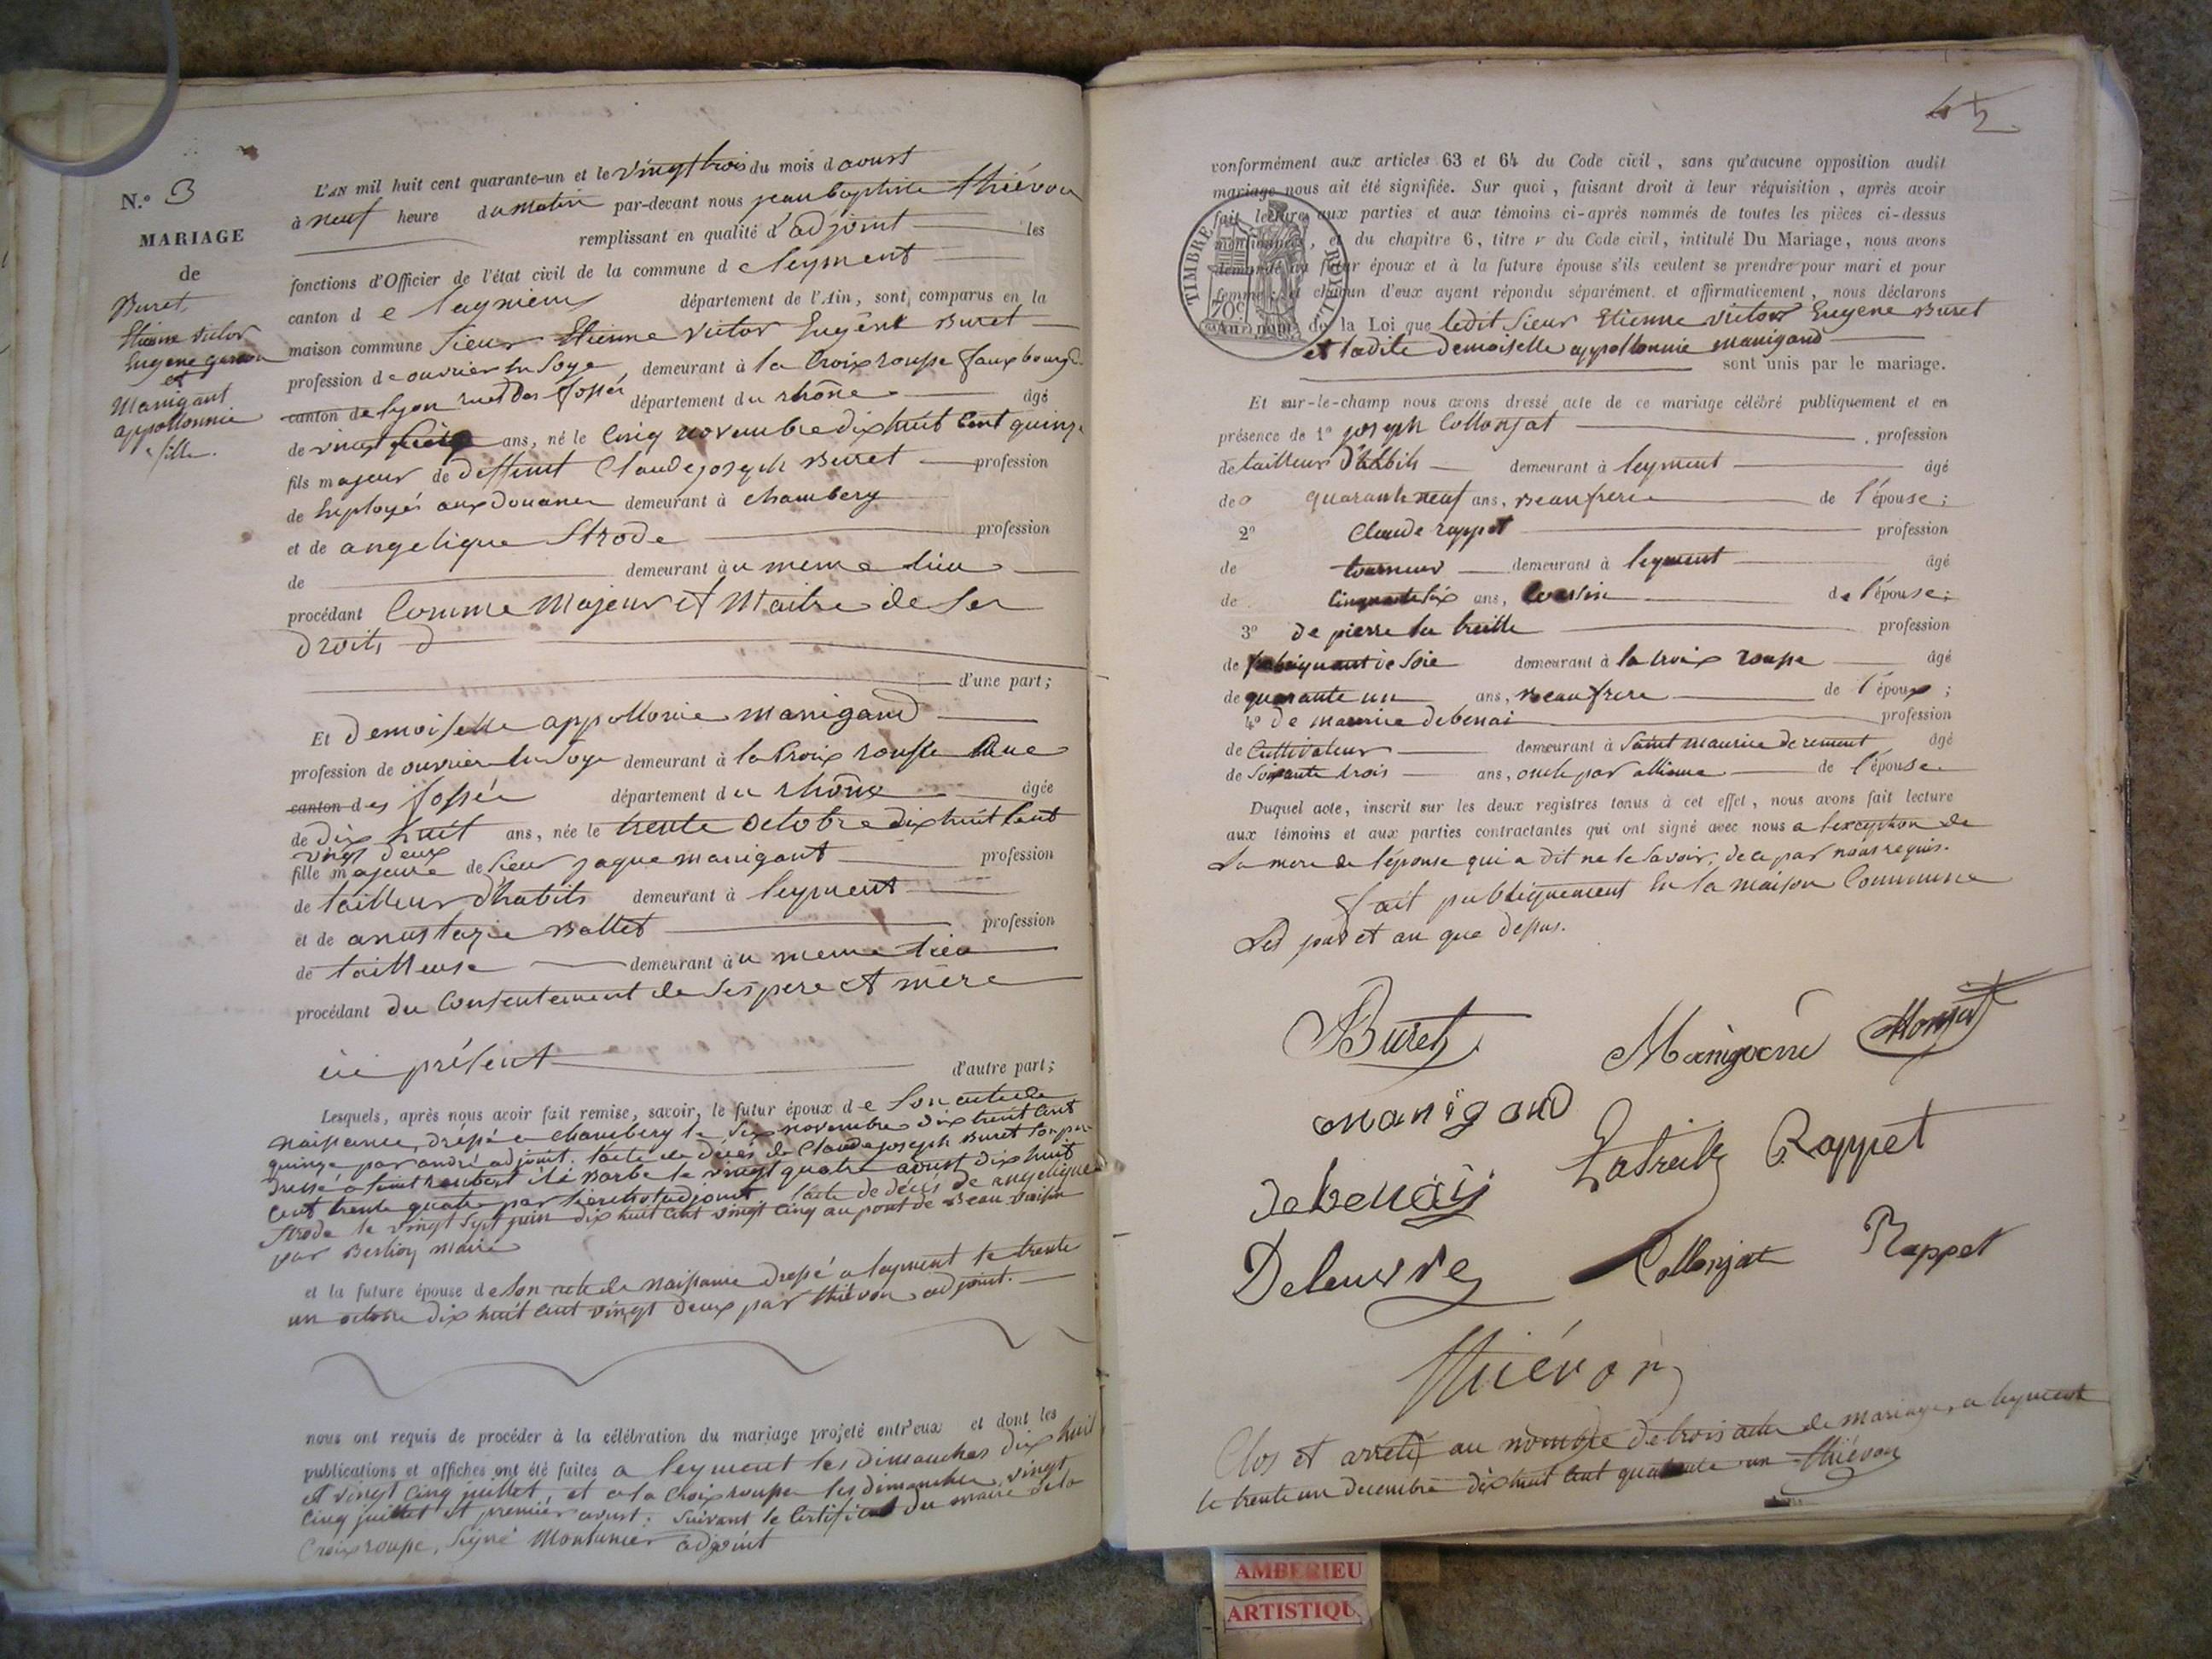 N.º 3
MARIAGE
de
Buret,
Etienne victor
Eugene garcon
et
Manigant
appollonnie
fille.
L'AN mil huit cent quarante-un et le vingt trois du mois d aoust
à neuf heure du matin par-devant nous jean baptiste thiévon
remplissant en qualité d'adjoint les
fonctions d'Officier de l'état civil de la commune d e leyment
canton d e lagnieux département de l'Ain, sont comparus en la
maison commune Sieur Etienne Victor Eugêne Buret
profession de ouvrier En Soye, demeurant à la Croix rousse fauxbourg
canton de lyon rue des fossés département du rhône âgé
de vingt ans, né le Cinq novembre dix huit Cent quinze
fils majeur de deffunt Claude joseph Buret profession
de Employés aux douanes demeurant à chambery
et de angelique Strode profession
de demeurant àu meme lieu
procédant Comme Majeur et Maitre de Ses
droits d
d'une part;
Et demoiselle appollonie manigand
profession de ouvriere En Soye demeurant à la Croix rousse Rue
canton des fossés département du rhône âgée
de dix huit ans, née le trente Octobre dix huit Cent
vingt deux
fille majeure de Sieur jaque manigant profession
de tailleur d'habits demeurant à leyment
et de anastazie Ballet profession
de tailleuse demeurant àu meme lieu
procédant du Consentement de Ses pere et mère
ici présent d'autre part;
Lesquels, après nous avoir fait remise, savoir, le futur époux de Son acte de
naissance, dréssé a chambery le Six novembre dix huit Cent
quinze par andré adjoint. l'acte de décès de Claude joseph Buret son père
dressé a Saint rambert ile Barbe le vingt quatre aoust dix huit
cent trente quatre par adjoint l'acte de décés de angelique
Strode le vingt Sept juin dix huit Cent vingt Cinq au pont de Beau voisin
par Berlioz maire
et la future épouse de Son acte de naissance dressé a leyment le trente
un octobre dix huit Cent vingt deux par thiévon adjoint.
nous ont requis de procéder à la célébration du mariage projeté entr'eux et dont les
publications et affiches ont été faites a leyment les dimanches dix huit
et vingt cinq juillet et a la Croix rousse les dimanches vingt
cinq juillet et premier aoust: Suivant le Certificat du maire de la
Croix rousse, Signé Montanier adjoint
42
conformément aux articles 63 et 64 du Code civil, sans qu'aucune opposition audit
mariage nous ait été signifiée. Sur quoi, faisant droit à leur réquisition, après avoir
fait lecture aux parties et aux témoins ci-après nommés de toutes les pièces ci-dessus
mentionnées, et du chapitre 6, titre v du Code civil, intitulé Du Mariage, nous avons
demandé au futur époux et à la future épouse s'ils veulent se prendre pour mari et pour
femme; et chacun d'eux ayant répondu séparément et affirmativement, nous déclarons
au nom de la Loi que ledit Sieur Etienne Victor Eugene Buret
et ladite demoiselle appollonnie manigand
sont unis par le mariage.
TIMBRE ROYAL
70c
Et sur-le-champ nous avons dressé acte de ce mariage célébré publiquement et en
présence de 1º joseph Collonjat, profession
de tailleur d'habits demeurant à leyment âgé
de quarante neuf ans, Beaufrere de l'épouse;
2º Claude rappet profession
de tourneur demeurant à leyment âgé
de Cinquante Six ans, Cousin de l'épouse;
3º de pierre la treille profession
de fabriquant de Soie demeurant à la Croix rousse âgé
de quarante un ans, Beaufrere de l'époux;
4º de maurice debenai profession
de Cultivateur demeurant à Saint maurice de rement âgé
de Soixante trois ans, oncle par alliance de l'épouse
Duquel acte, inscrit sur les deux registres tenus à cet effet, nous avons fait lecture
aux témoins et aux parties contractantes qui ont signé avec nous a l'exception de
La mere de l'épouse qui a dit ne le Savoir, de ce par nous requis.
fait publiquement En la maison Commune
Les jour et an que dessus.
Buret Manigand
manigand Latreille Rappet
debenais
Deleuvre Collonjat Rappet
thiévon
Clos et arreté au nombre de trois actes de mariage, a leyment
le trente un decembre dix huit Cent quarante un thiévon
AMBERIEU
ARTISTIQU